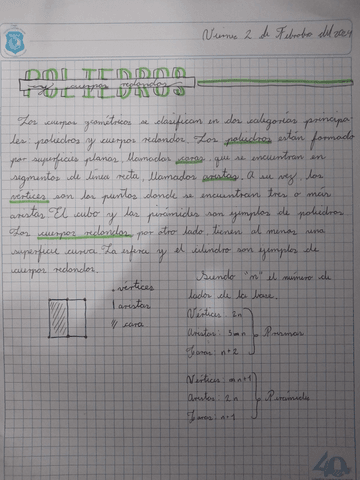 Viernes 2 de Febrero del 2024
POLIEDROS
y cuerpos redondos
Los cuerpos geométricos se clasifican en dos categorías principa-
les: poliedros y cuerpos redondos. Los poliedros están formados
por superficies planas, llamadas caras, que se encuentran en
segmentos de línea recta, llamados aristas. A su vez, los
vértices son los puntos donde se encuentran tres o más
aristas. El cubo y las pirámides son ejemplos de poliedros.
Los cuerpos redondos, por otro lado, tienen al menos una
superficie curva. La esfera y el cilindro son ejemplos de
cuerpos redondos.
. vértices
| aristas
// cara
Siendo "n" el número de
lados de la base.
Vértices: 2n
Aristas: 3n
Caras: n+2
Prismas
Vértices: n+1
Aristas: 2n
Caras: n+1
Pirámide
40